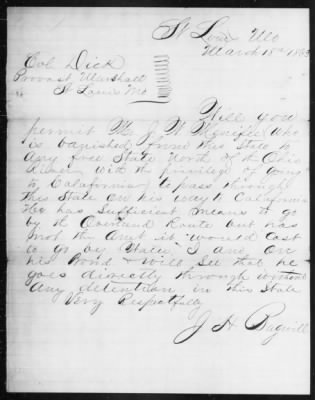 St Louis Mo
March 18th 1863
Col Dick
Provost Marshall
St Louis Mo
Will you
permit Mr J W who
is banished from this State to
any free State North of the Ohio
River with the privilege of going
to California to pass through
this State on his way to California
He has sufficient means to go
by the Overland Route but has
not the Amt it would cost
to go by Water I am on
his Bond & will See that he
goes directly through without
any detention in this State
Very Respectfully
J H Bagwill